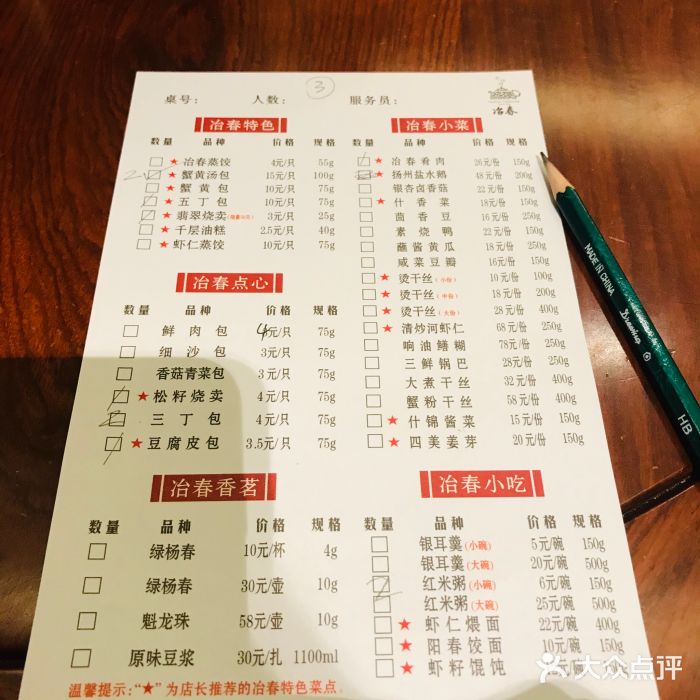 ③
桌号： 人数： 服务员：
冶春
冶春特色
数量 品种 价格 规格
★冶春蒸饺 4元/只 55g
2 ★蟹黄汤包 15元/只 100g
★蟹黄包 10元/只 75g
★五丁包 10元/只 75g
★翡翠烧卖 3元/只 25g
★千层油糕 2.5元/只 40g
★虾仁蒸饺 10元/只 75g
冶春点心
数量 品种 价格 规格
鲜肉包 4元/只 75g
细沙包 3元/只 75g
香菇青菜包 3元/只 75g
★松籽烧卖 4元/只 75g
三丁包 4元/只 75g
★豆腐皮包 3.5元/只 75g
冶春香茗
数量 品种 价格 规格
绿杨春 10元/杯 4g
绿杨春 30元/壶 10g
魁龙珠 58元/壶 10g
原味豆浆 30元/扎 1100ml
温馨提示：“★”为店长推荐的冶春特色菜点。
冶春小菜
数量 品种 价格 规格
★冶春肴肉 26元/份 150g
★扬州盐水鹅 48元/份 200g
银杏卤香菇 22元/份 150g
★什香菜 18元/份 150g
茴香豆 16元/份 250g
素烧鸭 22元/份 150g
蘸酱黄瓜 18元/份 250g
咸菜豆瓣 16元/份 150g
★烫干丝(小份) 10元/份 100g
★烫干丝(中份) 18元/份 200g
★烫干丝(大份) 28元/份 400g
★清炒河虾仁 68元/份 250g
响油鳝糊 78元/份 250g
三鲜锅巴 28元/份 250g
大煮干丝 32元/份 400g
蟹粉干丝 58元/份 400g
★什锦酱菜 15元/份 150g
★四美姜芽 20元/份 150g
冶春小吃
数量 品种 价格 规格
银耳羹(小碗) 5元/碗 150g
银耳羹(大碗) 20元/碗 500g
红米粥(小碗) 6元/碗 150g
红米粥(大碗) 25元/碗 500g
★虾仁煨面 22元/碗 400g
★阳春饺面 10元/碗 150g
★虾籽馄饨
MADE IN CHINA
HB
大众点评